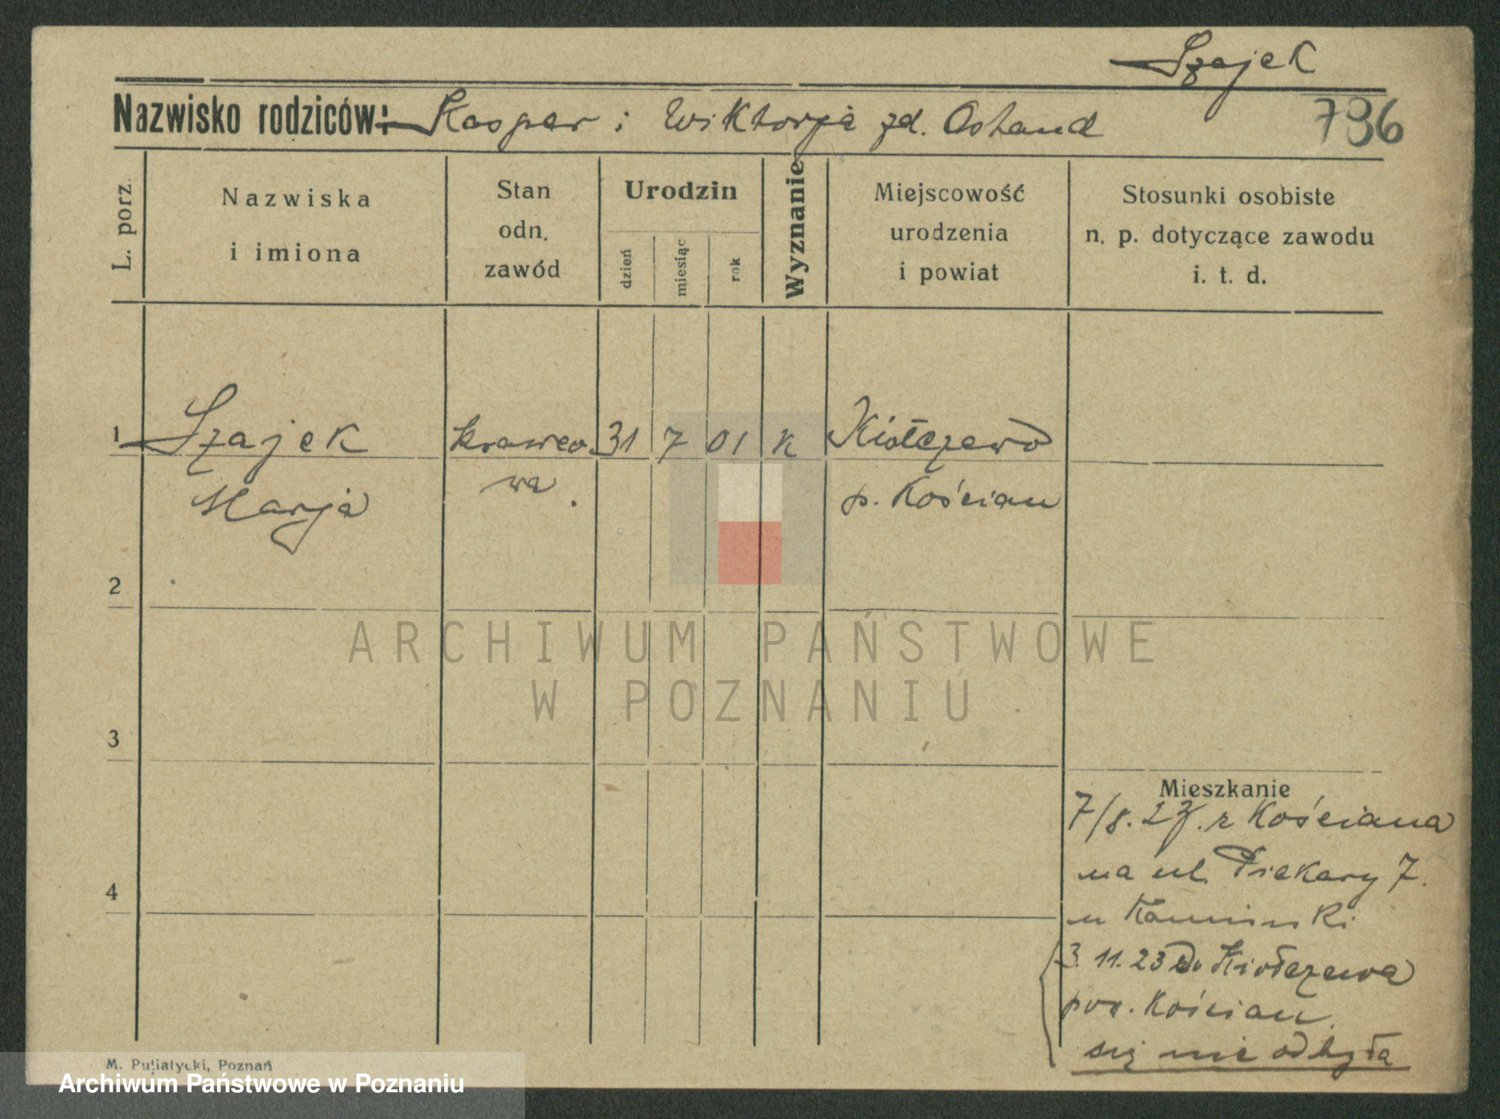 Szajek
Nazwisko rodziców: Kasper i Wiktorja zd.
796
L. porz.
Nazwiska
i imiona
Stan
odn.
zawód
Urodzin
dzień
miesiąc
rok
Wyznanie
Miejscowość
urodzenia
i powiat
Stosunki osobiste
n. p. dotyczące zawodu
i. t. d.
1 Szajek krawco 31 7 01 K Kiołczewo
Marja wa. p. Kościan
2
3
4
ARCHIWUM PAŃSTWOWE
W POZNANIU
Mieszkanie
7/8. 23. z Kościana
na ul. Piekary 7.
u Kaminski
3. 11. 23 do Kiołczewa
pow. Kościan
się nie odbyła
M. Putiatycki, Poznań
Archiwum Państwowe w Poznaniu